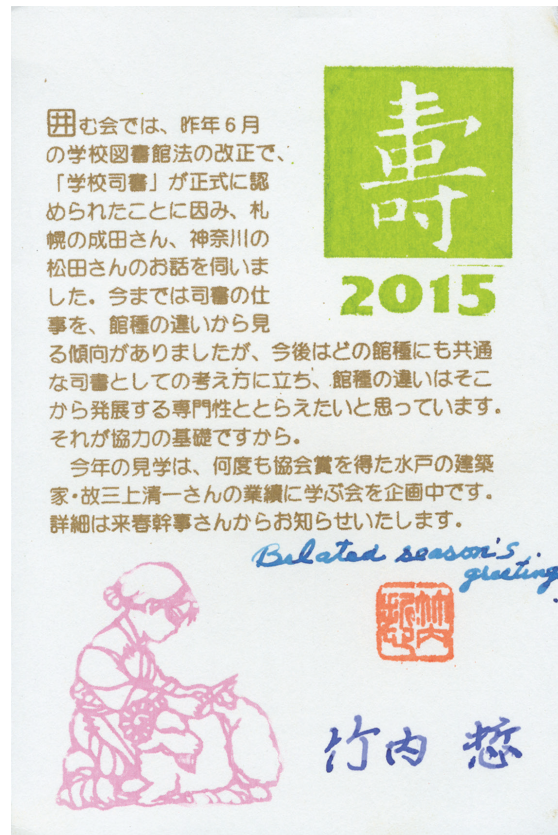 壽
2015
囲む会では、昨年6月
の学校図書館法の改正で、
「学校司書」が正式に認
められたことに因み、札
幌の成田さん、神奈川の
松田さんのお話を伺いま
した。今までは司書の仕
事を、館種の違いから見
る傾向がありましたが、今後はどの館種にも共通
な司書としての考え方に立ち、館種の違いはそこ
から発展する専門性ととらえたいと思っています。
それが協力の基礎ですから。
今年の見学は、何度も協会賞を得た水戸の建築
家・故三上清一さんの業績に学ぶ会を企画中です。
詳細は来春幹事さんからお知らせいたします。
Belated season's
greeting
竹内悊
竹内 悊